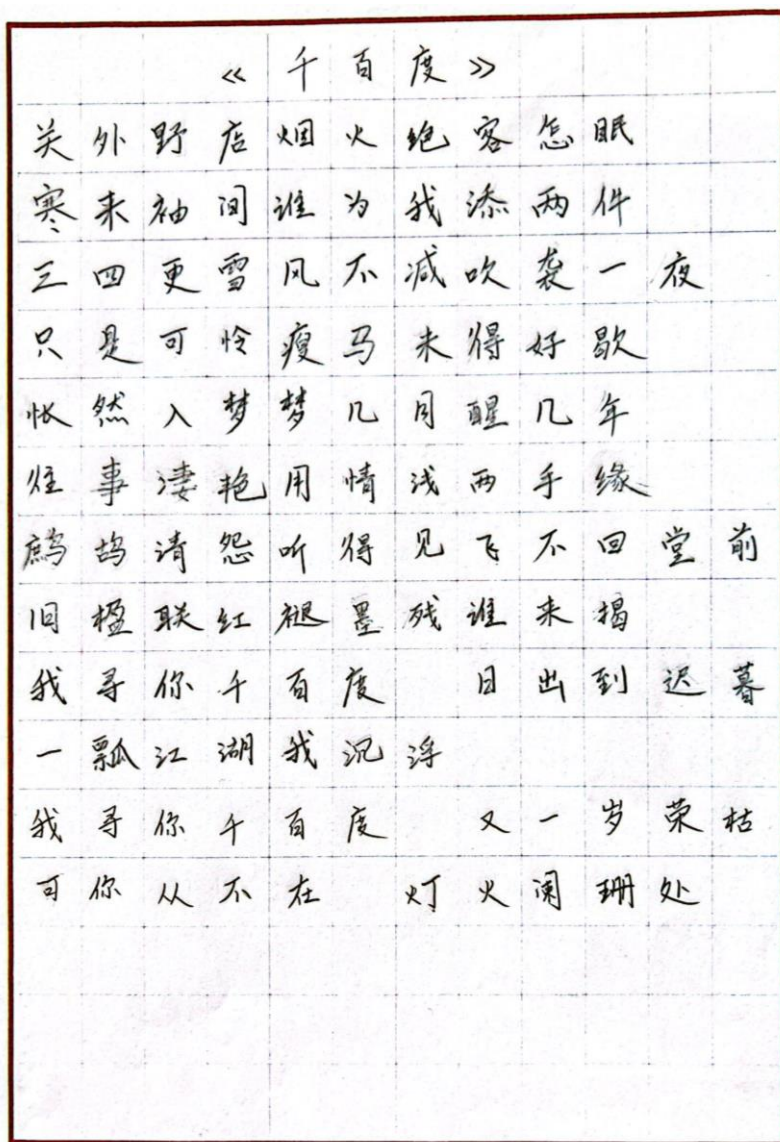 《千百度》
关外野店烟火绝客怎眠
寒来袖间谁为我添两件
三四更雪风不减吹袭一夜
只是可怜瘦马未得好歇
怅然入梦梦几月醒几年
往事凄艳用情浅两手缘
鹧鸪清怨听得见飞不回堂前
旧楹联红褪墨残谁来揭
我寻你千百度 日出到迟暮
一瓢江湖我沉浮
我寻你千百度 又一岁荣枯
可你从不在 灯火阑珊处